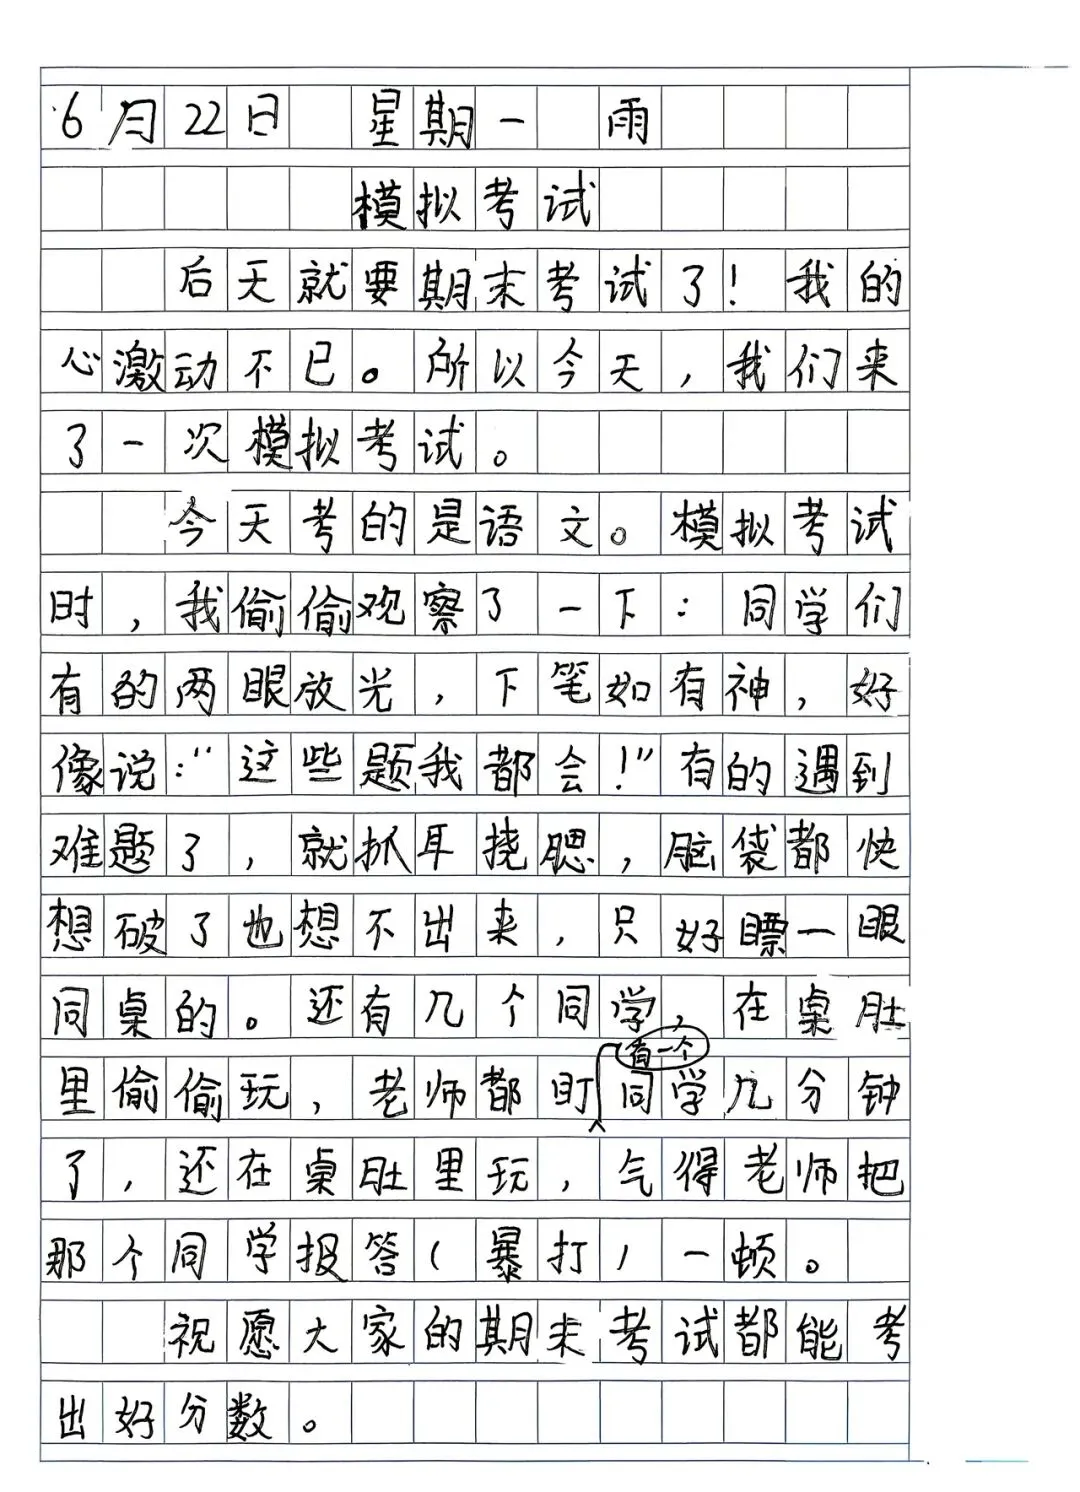 6月22日 星期一 雨
模拟考试
后天就要期末考试了！我的
心激动不已。所以今天，我们来
了一次模拟考试。
今天考的是语文。模拟考试
时，我偷偷观察了一下：同学们
有的两眼放光，下笔如有神，好
像说：“这些题我都会！”有的遇到
难题了，就抓耳挠腮，脑袋都快
想破了也想不出来，只好瞟一眼
同桌的。还有几个同学，在桌肚
看一个
里偷偷玩，老师都盯同学几分钟
了，还在桌肚里玩，气得老师把
那个同学报答（暴打）一顿。
祝愿大家的期末考试都能考
出好分数。